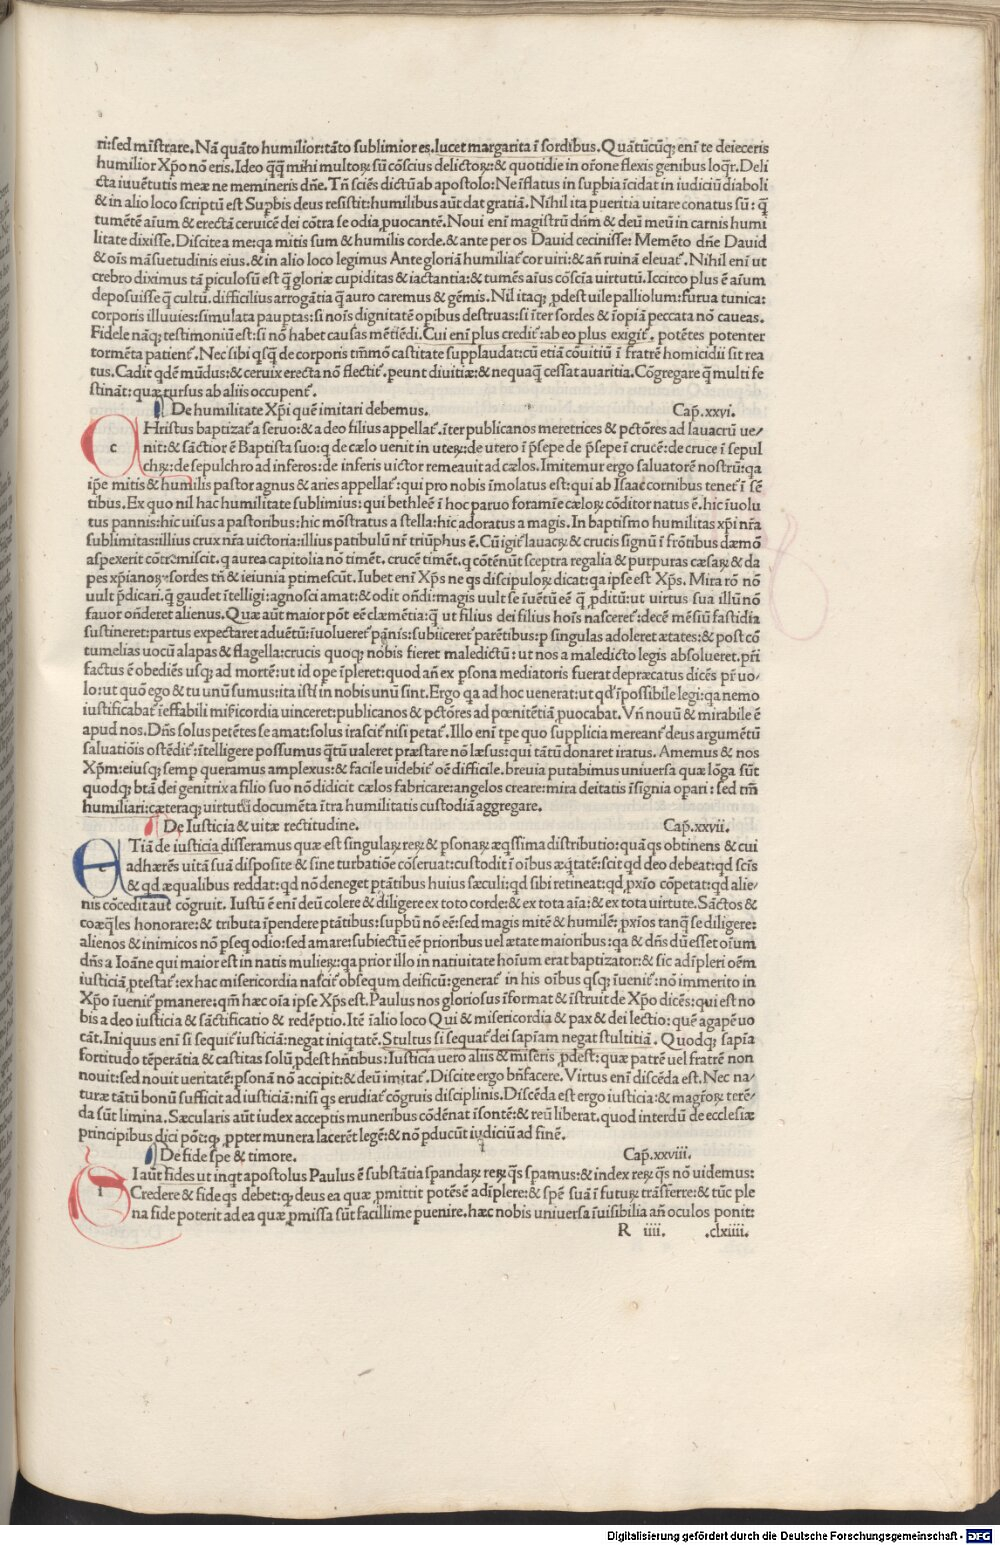 ri:sed mĩstrare. Nã quãto humilior:tãto sublimior es. lucet margarita ĩ sordibus. Quãtũcũq; enĩ te deieceris
humilior Xp̃o nõ eris. Ideo q̃q̃ mihi multoꝝ sũ cõscius delictoꝝ:& quotidie in orõne flexis genibus loq̃r. Deli
cta iuuẽtutis meæ ne memineris dñe. Tñ sciẽs dictũ ab apostolo: Ne ĩflatus in supbia ĩcidat in iudiciũ diaboli
& in alio loco scriptũ est Supbis deus resistit: humilibus aũt dat gratiã. Nihil ita pueritia uitare conatus sũ: q̃
tumẽtẽ aĩum & erectã ceruicẽ dei cõtra se odia ꝓuocantẽ. Noui enĩ magistrũ dñm & deũ meũ in carnis humi
litate dixisse. Discite a me:qa mitis sum & humilis corde. & ante per os Dauid cecinisse: Memẽto dñe Dauid
& oĩs mãsuetudinis eius. & in alio loco legimus Ante gloriã humiliat̃ cor uiri: & añ ruinã eleuat̃. Nihil enĩ ut
crebro diximus tã piculosũ est q̃ gloriæ cupiditas & iactantia: & tumẽs aĩus cõscĩa uirtutũ. Iccirco plus ẽ aĩum
deposuisse q̃ cultũ. difficilius arrogãtia q̃ auro caremus & gẽmis. Nil itaq; ꝓdest uile palliolum: furua tunica:
corporis illuuies: simulata pauptas: si noĩs dignitatẽ opibus destruas: si ĩter sordes & ĩopiã peccata nõ caueas.
Fidele nãq; testimoniũ est: si nõ habet causas mẽtiẽdi. Cui enĩ plus credit̃: ab eo plus exigit̃. potẽtes potenter
tormẽta patient̃. Nec sibi qsq̃ de corporis tm̃mõ castitate supplaudat: cũ etiã cõuitiũ ĩ fratrẽ homicidii sit rea
tus. Cadit qdẽ mũdus: & ceruix erecta nõ flectit̃. peunt diuitiæ: & nequaq̃ cessat auaritia. Cõgregare q̃ multi fe
stinãt: quæ rursus ab aliis occupent̃.
De humilitate Xp̃i quẽ imitari debemus. Cap̃. xxvi.
CHristus baptizat̃ a seruo: & a deo filius appellat̃. ĩter publicanos meretrices & pctõres ad lauacrũ ue/
nit: & sãctior ẽ Baptista suo: q de cælo uenit in uteꝝ: de utero ĩ p̃sepe de p̃sepe ĩ crucẽ: de cruce ĩ sepul
chꝝ: de sepulchro ad inferos: de inferis uictor remeauit ad cælos. Imitemur ergo saluatorẽ nostrũ: qa
ip̃e mitis & humilis pastor agnus & aries appellat̃: qui pro nobis ĩmolatus est: qui ab Isaac cornibus tenet̃ ĩ sẽ
tibus. Ex quo nil hac humilitate sublimius: qui bethleẽ ĩ hoc paruo foramĩe cæloꝝ cõditor natus ẽ. hic ĩuolu
tus pannis: hic uisus a pastoribus: hic mõstratus a stella: hic adoratus a magis. In baptismo humilitas xp̃i nr̃a
sublimitas: illius crux nr̃a uictoria: illius patibulũ nr̃ triũphus ẽ. Cũ igit̃ lauacꝝ & crucis signũ ĩ frõtibus dæmõ
aspexerit cõtremiscit. q aurea capitolia nõ timẽt. crucẽ timẽt. q cõtẽnũt sceptra regalia & purpuras cæsaꝝ & da
pes xp̃ianoꝝ sordes tñ & ieiunia ptimescũt. Iubet enĩ Xp̃s ne qs discipuloꝝ dicat: qa ipse est Xp̃s. Mira rõ nõ
uult p̃dicari. q̃ gaudet ĩtelligi: agnosci amat: & odit oñdi: magis uult se ĩuẽtũ eẽ q̃ ꝓditũ: ut uirtus sua illũ nõ
fauor oñderet alienus. Quæ aũt maior põt eẽ clæmẽtia: q̃ ut filius dei filius hoĩs nasceret̃: decẽ mẽsiũ fastidia
sustineret: partus expectaret aduẽtũ: ĩuolueret̃ pãnis: subiiceret̃ parẽtibus: p singulas adoleret ætates: & post cõ
tumelias uocũ alapas & flagella: crucis quoq; nobis fieret maledictũ: ut nos a maledicto legis absolueret. pr̃i
factus ẽ obediẽs usq; ad mortẽ: ut id ope ĩpleret: quod añ ex psona mediatoris fuerat depræcatus dicẽs pr̃ uo-
lo: ut quõ ego & tu unũ sumus: ita isti in nobis unũ sint. Ergo qa ad hoc uenerat: ut qd ĩpossibile legi: qa nemo
iustificabat̃ ĩeffabili mĩricordia uinceret: publicanos & pctõres ad pœnitẽtiã ꝓuocabat. Vñ nouũ & mirabile ẽ
apud nos. Dñs solus petẽtes se amat: solus irascit̃ nisi petat̃. Illo enĩ tpe quo supplicia mereant̃ deus argumẽtũ
saluatiõis ostẽdit̃: ĩtelligere possumus q̃tũ ualeret præstare nõ læsus: qui tãtũ donaret iratus. Amemus & nos
Xp̃m: eiusq; semp queramus amplexus: & facile uidebit̃ oẽ difficile. breuia putabimus uniuersa quæ lõga sũt
quodq; btã dei genitrix a filio suo nõ didicit cælos fabricare: angelos creare: mira deitatis ĩsignia opari: sed tm̃
humiliari: cæteraq; uirtutũ documẽta ĩtra humilitatis custodiã aggregare.
De Iusticia & uitæ rectitudine. Cap̃. xxvii.
ETiã de iusticia disseramus quæ est singulaꝝ reꝝ & psonaꝝ æqssima distributio: quã qs obtinens & cui
adhærẽs uitã suã disposite & sine turbatiõe cõseruat: custodit ĩ oĩbus æq̃tatẽ: scit qd deo debeat: qd scĩs
& qd æqualibus reddat: qd nõ deneget ptãtibus huius sæculi: qd sibi retineat: qd ꝓxĩo cõpetat: qd alie/
nis cõcedit aut cõgruit. Iustũ ẽ enĩ deũ colere & diligere ex toto corde: & ex tota aĩa: & ex tota uirtute. Sãctos &
coæq̃les honorare: & tributa ĩpendere ptãtibus: supbũ nõ eẽ: sed magis mitẽ & humilẽ: ꝓxĩos tanq̃ se diligere:
alienos & inimicos nõ pseq odio: sed amare: subiectũ eẽ prioribus uel ætate maioribus: qa & dñs dũ esset oĩum
dñs a Ioãne qui maior est in natis mulieꝝ: qa prior illo in natiuitate hoĩum erat baptizator: & sic adĩpleri oẽm
iusticiã ꝓtestat̃: ex hac misericordia nascit̃ obsequm deificũ: generat̃ in his oĩbus qsq; ĩuenit̃: nõ immerito in
Xp̃o ĩuenit̃ pmanere: qm̃ hæc oĩa ipse Xp̃s est. Paulus nos gloriosus ĩformat & ĩstruit de Xp̃o dicẽs: qui est no
bis a deo iusticia & sãctificatio & redẽptio. Itẽ ĩ alio loco Qui & misericordia & pax & dei lectio: quẽ agapẽ uo
cãt. Iniquus enĩ si sequit̃ iusticiã: negat iniq̃tatẽ. Stultus si sequat̃ dei sapĩam negat stultitiã. Quodq; sapĩa
fortitudo tẽperãtia & castitas solũ ꝓdest hñtibus: Iusticia uero aliis & miseris ꝓdest: quæ patrẽ uel fratrẽ non
nouit: sed nouit ueritatẽ: psonã nõ accipit: & deũ imitat̃. Discite ergo bñfacere. Virtus enĩ discẽda est. Nec na/
turæ tãtũ bonũ sufficit ad iusticiã: nisi qs erudiat̃ cõgruis disciplinis. Discẽda est ergo iusticia: & magr̃oꝝ terẽ/
da sũt limina. Sæcularis aũt iudex acceptis muneribus cõdẽnat ĩsontẽ: & reũ liberat. quod interdũ de ecclesiæ
principibus dici põt: q ꝓpter munera lacerẽt legẽ: & nõ pducũt iudiciũ ad finẽ.
De fide spe & timore. Cap̃. xxviii.
SI aũt fides ut inqt apostolus Paulus ẽ substãtia spandaꝝ reꝝ q̃s spamus: & index reꝝ q̃s nõ uidemus:
Credere & fide qs debet: q deus ea quæ ꝓmittit potẽs ẽ adĩplere: & spẽ suã ĩ futuꝝ trãsferre: & tũc ple
na fide poterit ad ea quæ ꝓmissa sũt facillime puenire. hæc nobis uniuersa ĩuisibilia añ oculos ponit:
R iiii. .clxiiii.
Digitalisierung gefördert durch die Deutsche Forschungsgemeinschaft - DFG